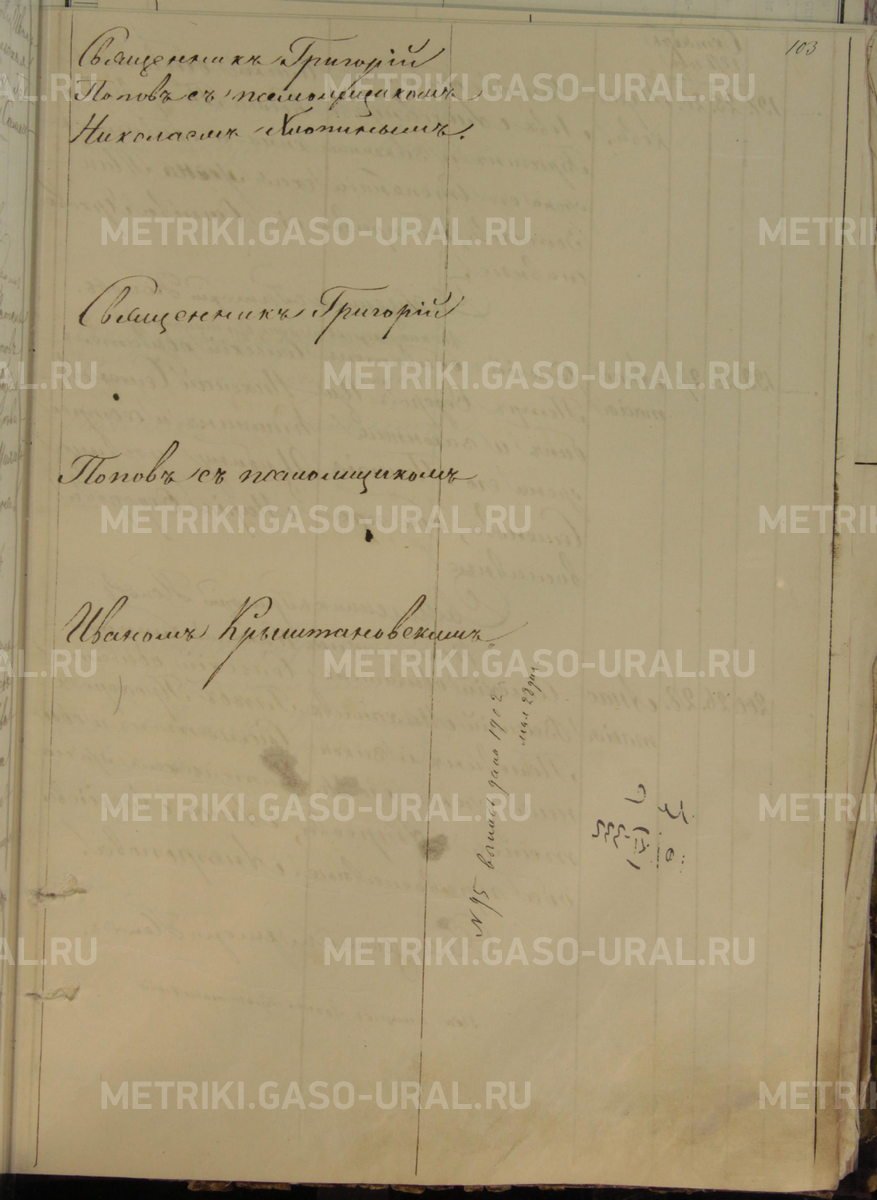 103
Священникъ Григорій
Поповъ съ псаломщикомъ
Николаемъ Хлопинымъ.
Священникъ Григорій
Поповъ съ псаломщикомъ
Иваномъ Крыштановскимъ.
N 95 выпись дана 1902
мая 23 дня
METRIKI.GASO-URAL.RU